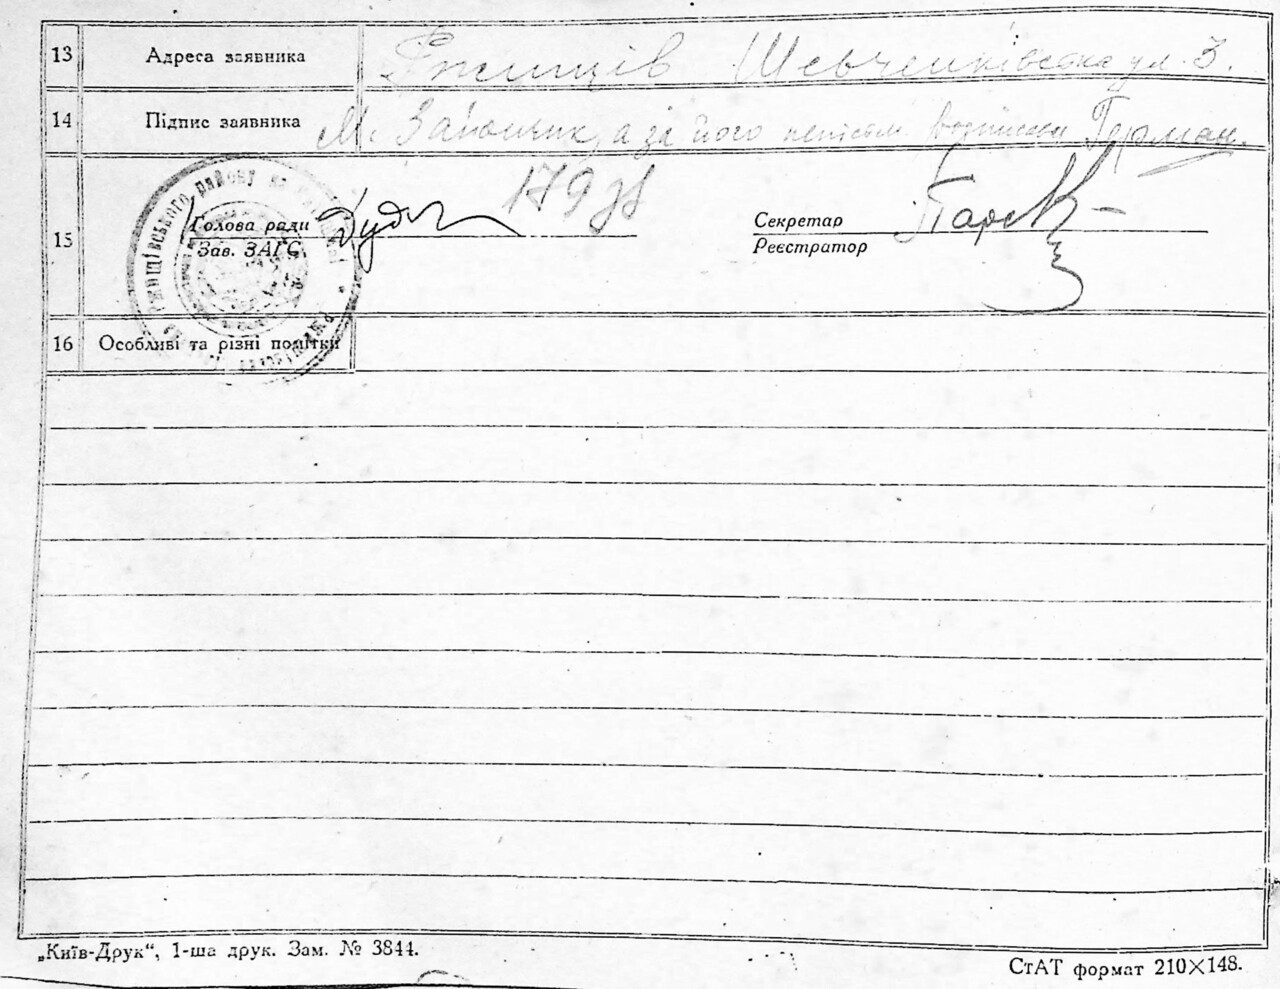 13 Адреса заявника Ржищів Шевченківська ул. 3.
14 Підпис заявника М. а за його непісьм. Герман.
179
15 Голова ради Секретар
Зав. ЗАГС Реєстратор
16 Особливі та різні помітки
„Київ-Друк“, 1-ша друк. Зам. № 3844.
СтАТ формат 210×148.